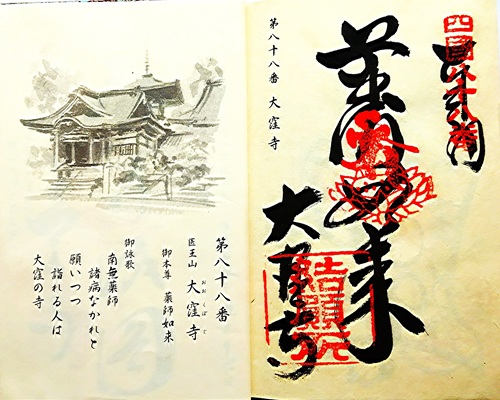 四國八十八番
薬師如来
大窪寺
結願所
第八十八番 大窪寺
第八十八番
医王山 大窪寺
おおくぼじ
御本尊 薬師如来
御詠歌
南無薬師
諸病なかれと
願いつつ
詣れる人は
大窪の寺